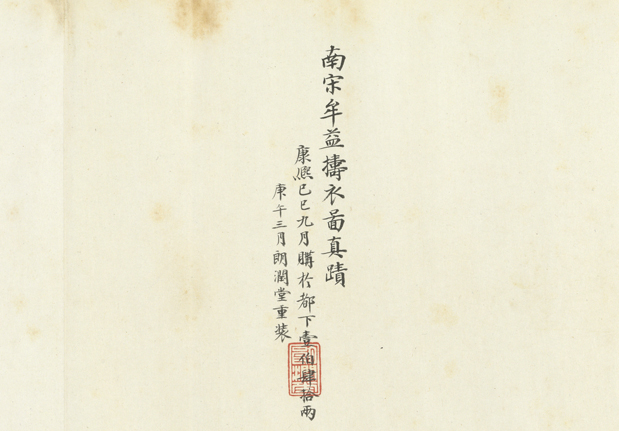 南宋牟益擣衣啚真蹟
康熙己巳九月購於都下壹伯肆拾兩
庚午三月朗潤堂重装